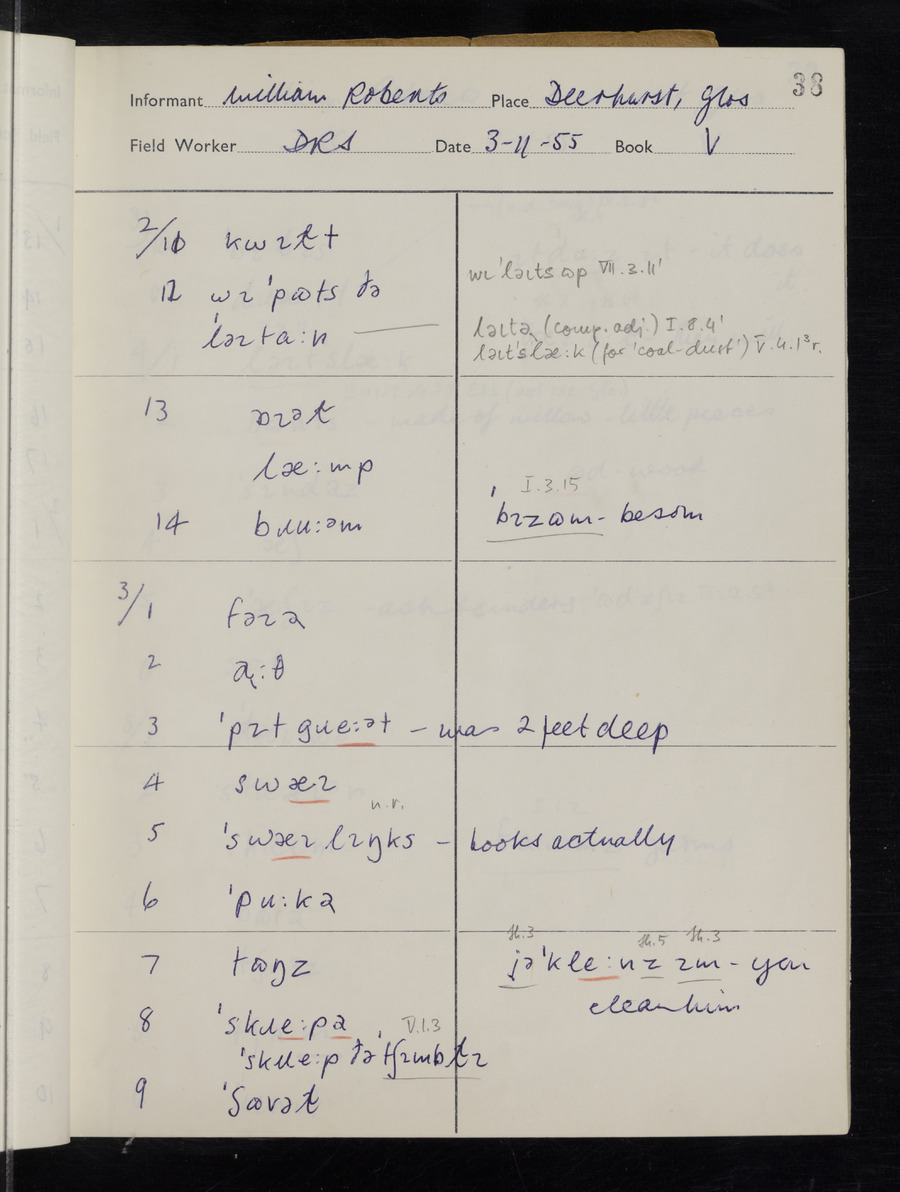 38
Informant William Roberts Place Deerhurst, Glos
Field Worker DRS Date 3-11-55 Book V
2/10 kwɪɫt
12 wɪ ˈpɷts ðə
ˈləɪtɑ:n
wɪˈləɪts ɷp VII.3.11'
ləɪtə̢ (comp. adj.) I.8.4'
ləɪtˈslæ:k (for 'coal-dust') V.4.1³r.
13 ɒɪəɫ
læ:mp
14 bɹu:əm
I.3.15
ˈbɪzɷm - besom
3/1 fəɪə̢
2 ə̢:θ
3 ˈpɪt gɹe:ət - was 2 feet deep
4 swæɪ
n.r.
5 ˈswæɪ lɪŋks - hooks actually
6 ˈpu:kə̢
7 tɷŋz
th.3 th.5 th.3
jəˈkle:nz ɪm - you
clean him
8 ˈskɹe:pə̢
V.1.3
ˈskɹe:p ðə ˈtʃɪmbɫɪ
9 ˈʃɷvəɫ